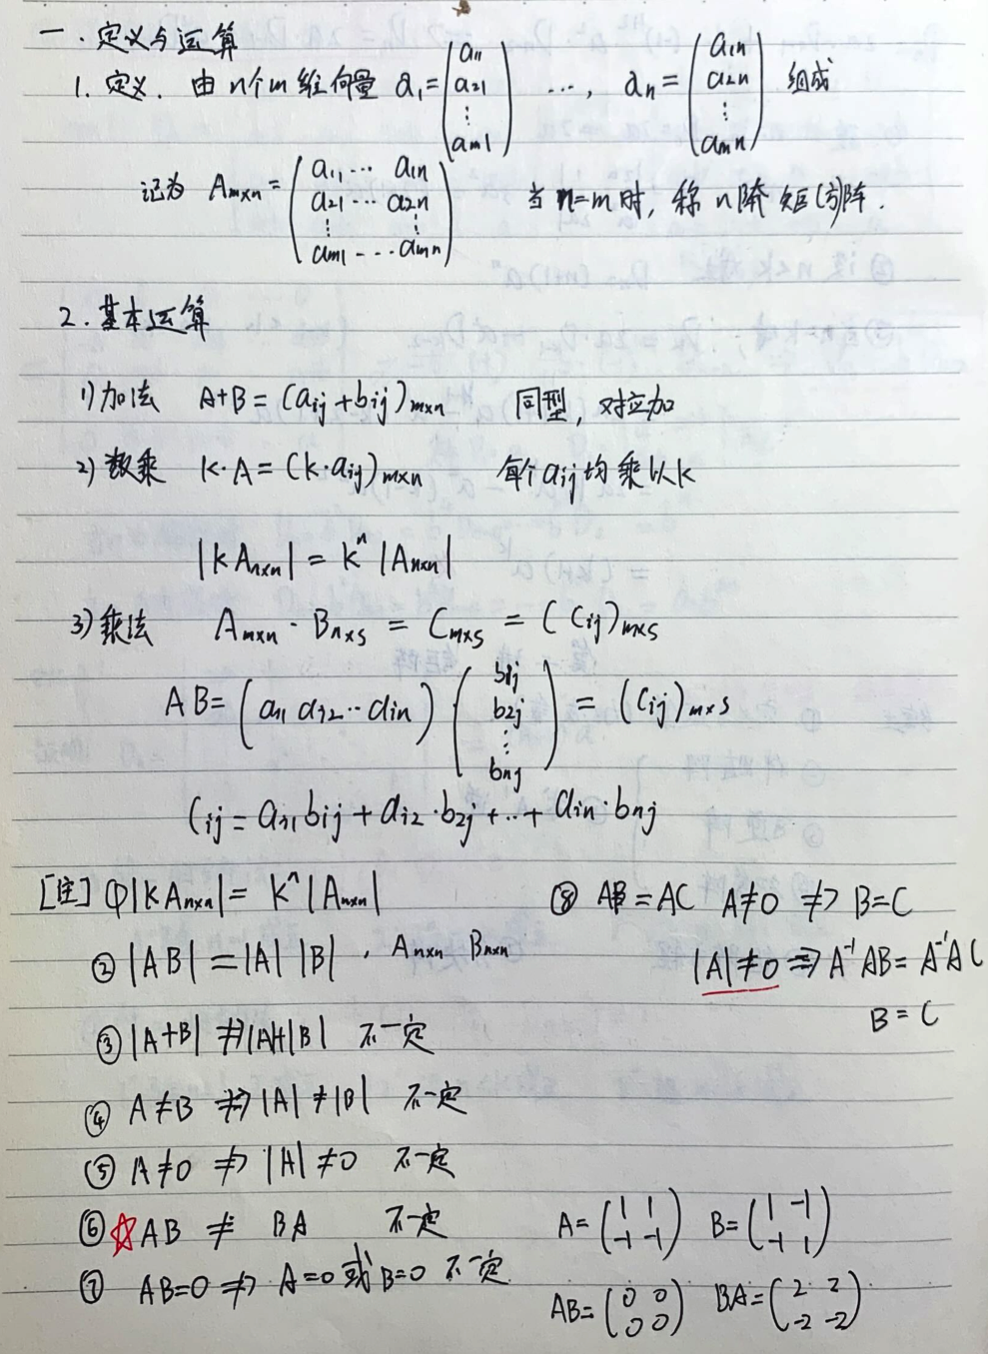 一.定义与运算
1.定义.由n个m维向量 a₁=(a₁₁ a₂₁ ⋮ aₘ₁) ..., aₙ=(a₁ₙ a₂ₙ ⋮ aₘₙ) 组成
记为 Aₘₓₙ=(a₁₁ ⋯ a₁ₙ a₂₁ ⋯ a₂ₙ ⋮ ⋮ aₘ₁ ⋯ aₘₙ) 当n=m时,称n阶矩(方)阵.
2.基本运算
1)加法 A+B=(aij+bij)m×n 同型,对应加
2)数乘 k·A=(k·aij)m×n 每个aij均乘以k
|kAn×n|=kⁿ|An×n|
3)乘法 Am×n·Bn×s=Cm×s=(Cij)m×s
AB=(ai1 ai2 ⋯ ain)(b1j b2j ⋮ bnj)=(Cij)m×s
Cij=ai1bij+ai2·b2j+⋯+ain·bnj
[注]①|kAn×n|=kⁿ|An×n|
⑧ AB=AC A≠0 ⇏ B=C
②|AB|=|A||B|, An×n Bn×n
|A|≠0 ⇒ A⁻¹AB=A⁻¹AC
B=C
③|A+B| ⇏ |A+|B| 不一定
④ A≠B ⇏ |A|≠|B| 不一定
⑤ A≠0 ⇏ |A|≠0 不一定
⑥☆AB ≠ BA 不一定
A=(1 1 -1 -1) B=(1 -1 -1 1)
⑦ AB=0 ⇏ A=0或B=0 不一定
AB=(0 0 0 0) BA=(2 2 -2 -2)